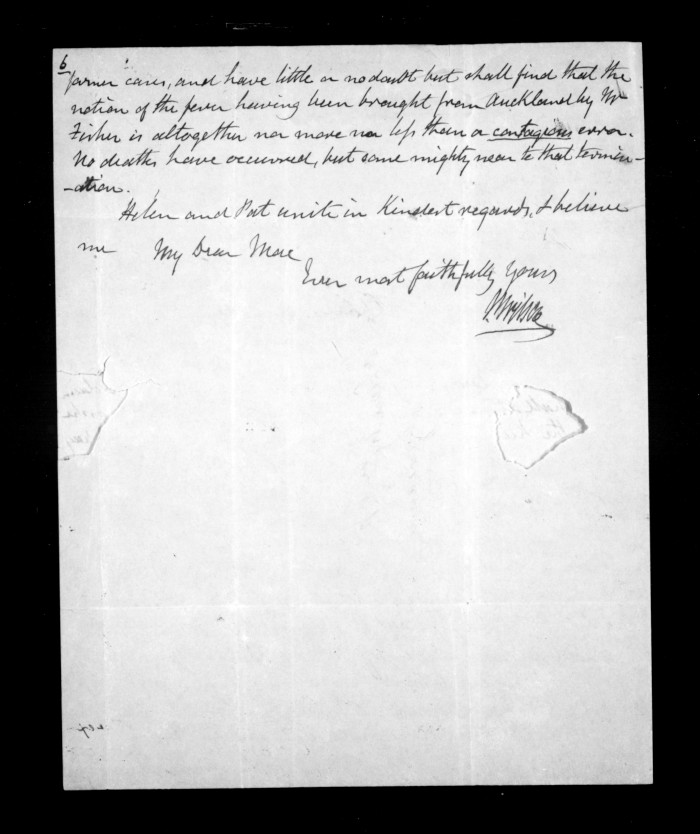 6
former cases, and have little or no doubt but shall find that the
notion of the fever having been brought from Auckland by Mr
Fisher is altogether nor more nor less than a contagious error.
No deaths have occurred, but some mighty near to that termin-
-ation.
Helen and Pat unite in Kindest regards, & believe
me My Dear Mac
Ever most faithfully Yours
P Wilson